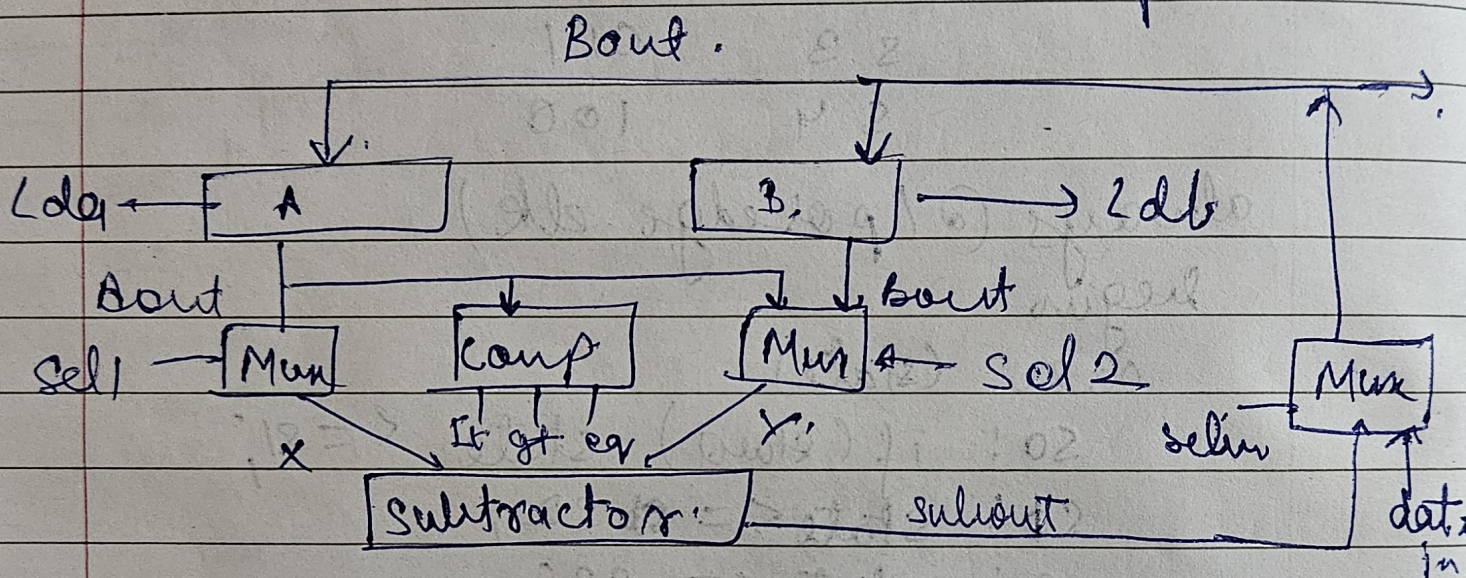 Bout.
Lda A B. Ldb
Aout Bout
Sel1 Mux Comp Mux Sel2 Mux
lt gt eq selin
X Y.
Subtractor. subout data
in